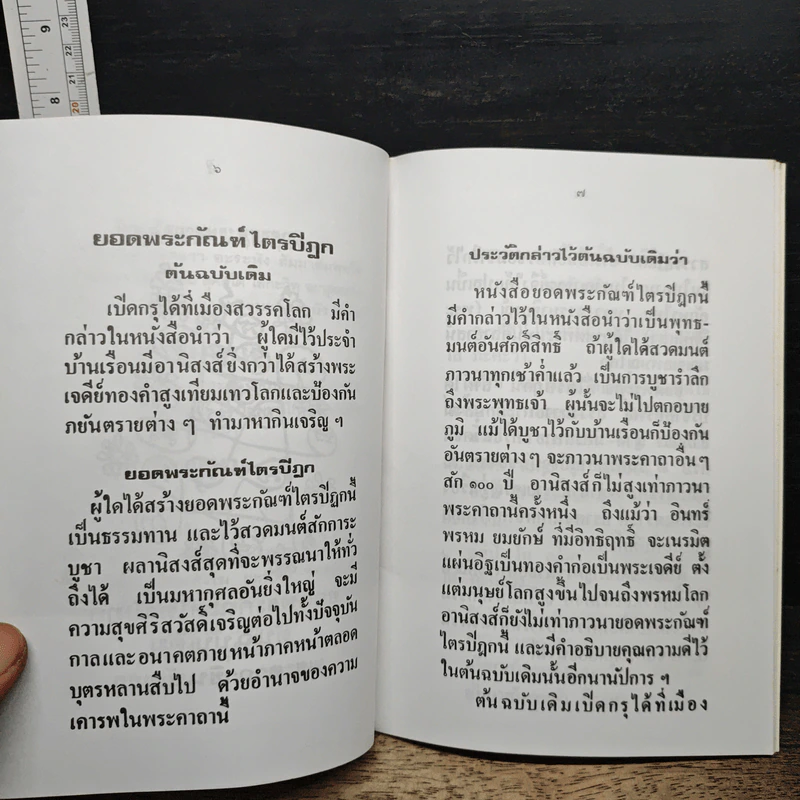 9
8
23
22
21
20
๖
ยอดพระกัณฑ์ไตรปิฎก
ต้นฉบับเดิม
เปิดกรุได้ที่เมืองสวรรคโลก มีคำ
กล่าวในหนังสือนำว่า ผู้ใดมีไว้ประจำ
บ้านเรือนมีอานิสงส์ยิ่งกว่าได้สร้างพระ
เจดีย์ทองคำสูงเทียมเทวโลกและป้องกัน
ภยันตรายต่าง ๆ ทำมาหากินเจริญ ฯ
ยอดพระกัณฑ์ไตรปิฎก
ผู้ใดได้สร้างยอดพระกัณฑ์ไตรปิฎกนี้
เป็นธรรมทาน และไว้สวดมนต์สักการะ
บูชา ผลานิสงส์สุดที่จะพรรณนาให้ทั่ว
ถึงได้ เป็นมหากุศลอันยิ่งใหญ่ จะมี
ความสุขศิริสวัสดิ์เจริญต่อไปทั้งปัจจุบัน
กาลและอนาคตภายหน้าภาคหน้าตลอด
บุตรหลานสืบไป ด้วยอำนาจของความ
เคารพในพระคาถานี้
๗
ประวัติกล่าวไว้ต้นฉบับเดิมว่า
หนังสือยอดพระกัณฑ์ไตรปิฎกนี้
มีคำกล่าวไว้ในหนังสือนำว่าเป็นพุทธ-
มนต์อันศักดิ์สิทธิ์ ถ้าผู้ใดได้สวดมนต์
ภาวนาทุกเช้าค่ำแล้ว เป็นการบูชารำลึก
ถึงพระพุทธเจ้า ผู้นั้นจะไม่ไปตกอบาย
ภูมิ แม้ได้บูชาไว้กับบ้านเรือนก็ป้องกัน
อันตรายต่างๆ จะภาวนาพระคาถาอื่นๆ
สัก ๑๐๐ ปี อานิสงส์ก็ไม่สูงเท่าภาวนา
พระคาถานี้ครั้งหนึ่ง ถึงแม้ว่า อินทร์
พรหม ยมยักษ์ ที่มีอิทธิฤทธิ์ จะเนรมิต
แผ่นอิฐเป็นทองคำก่อเป็นพระเจดีย์ ตั้ง
แต่มนุษย์โลกสูงขึ้นไปจนถึงพรหมโลก
อานิสงส์ก็ยังไม่เท่าภาวนายอดพระกัณฑ์
ไตรปิฎกนี้ และมีคำอธิบายคุณความดีไว้
ในต้นฉบับเดิมนั้นอีกนานัปการ ฯ
ต้นฉบับเดิมเปิดกรุได้ที่เมือง